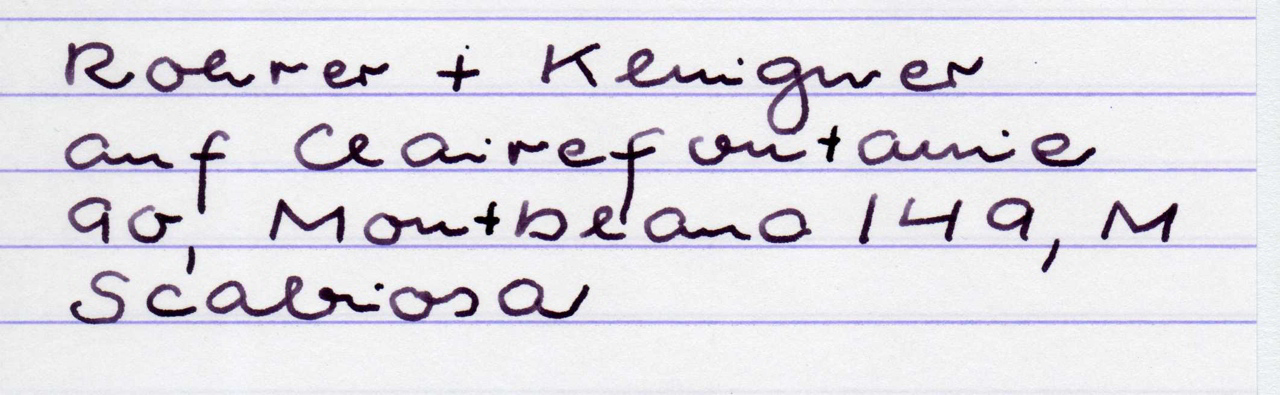 Rohrer + Klingner
auf Clairefontaine
90, Montblanc 149, M
Scabiosa